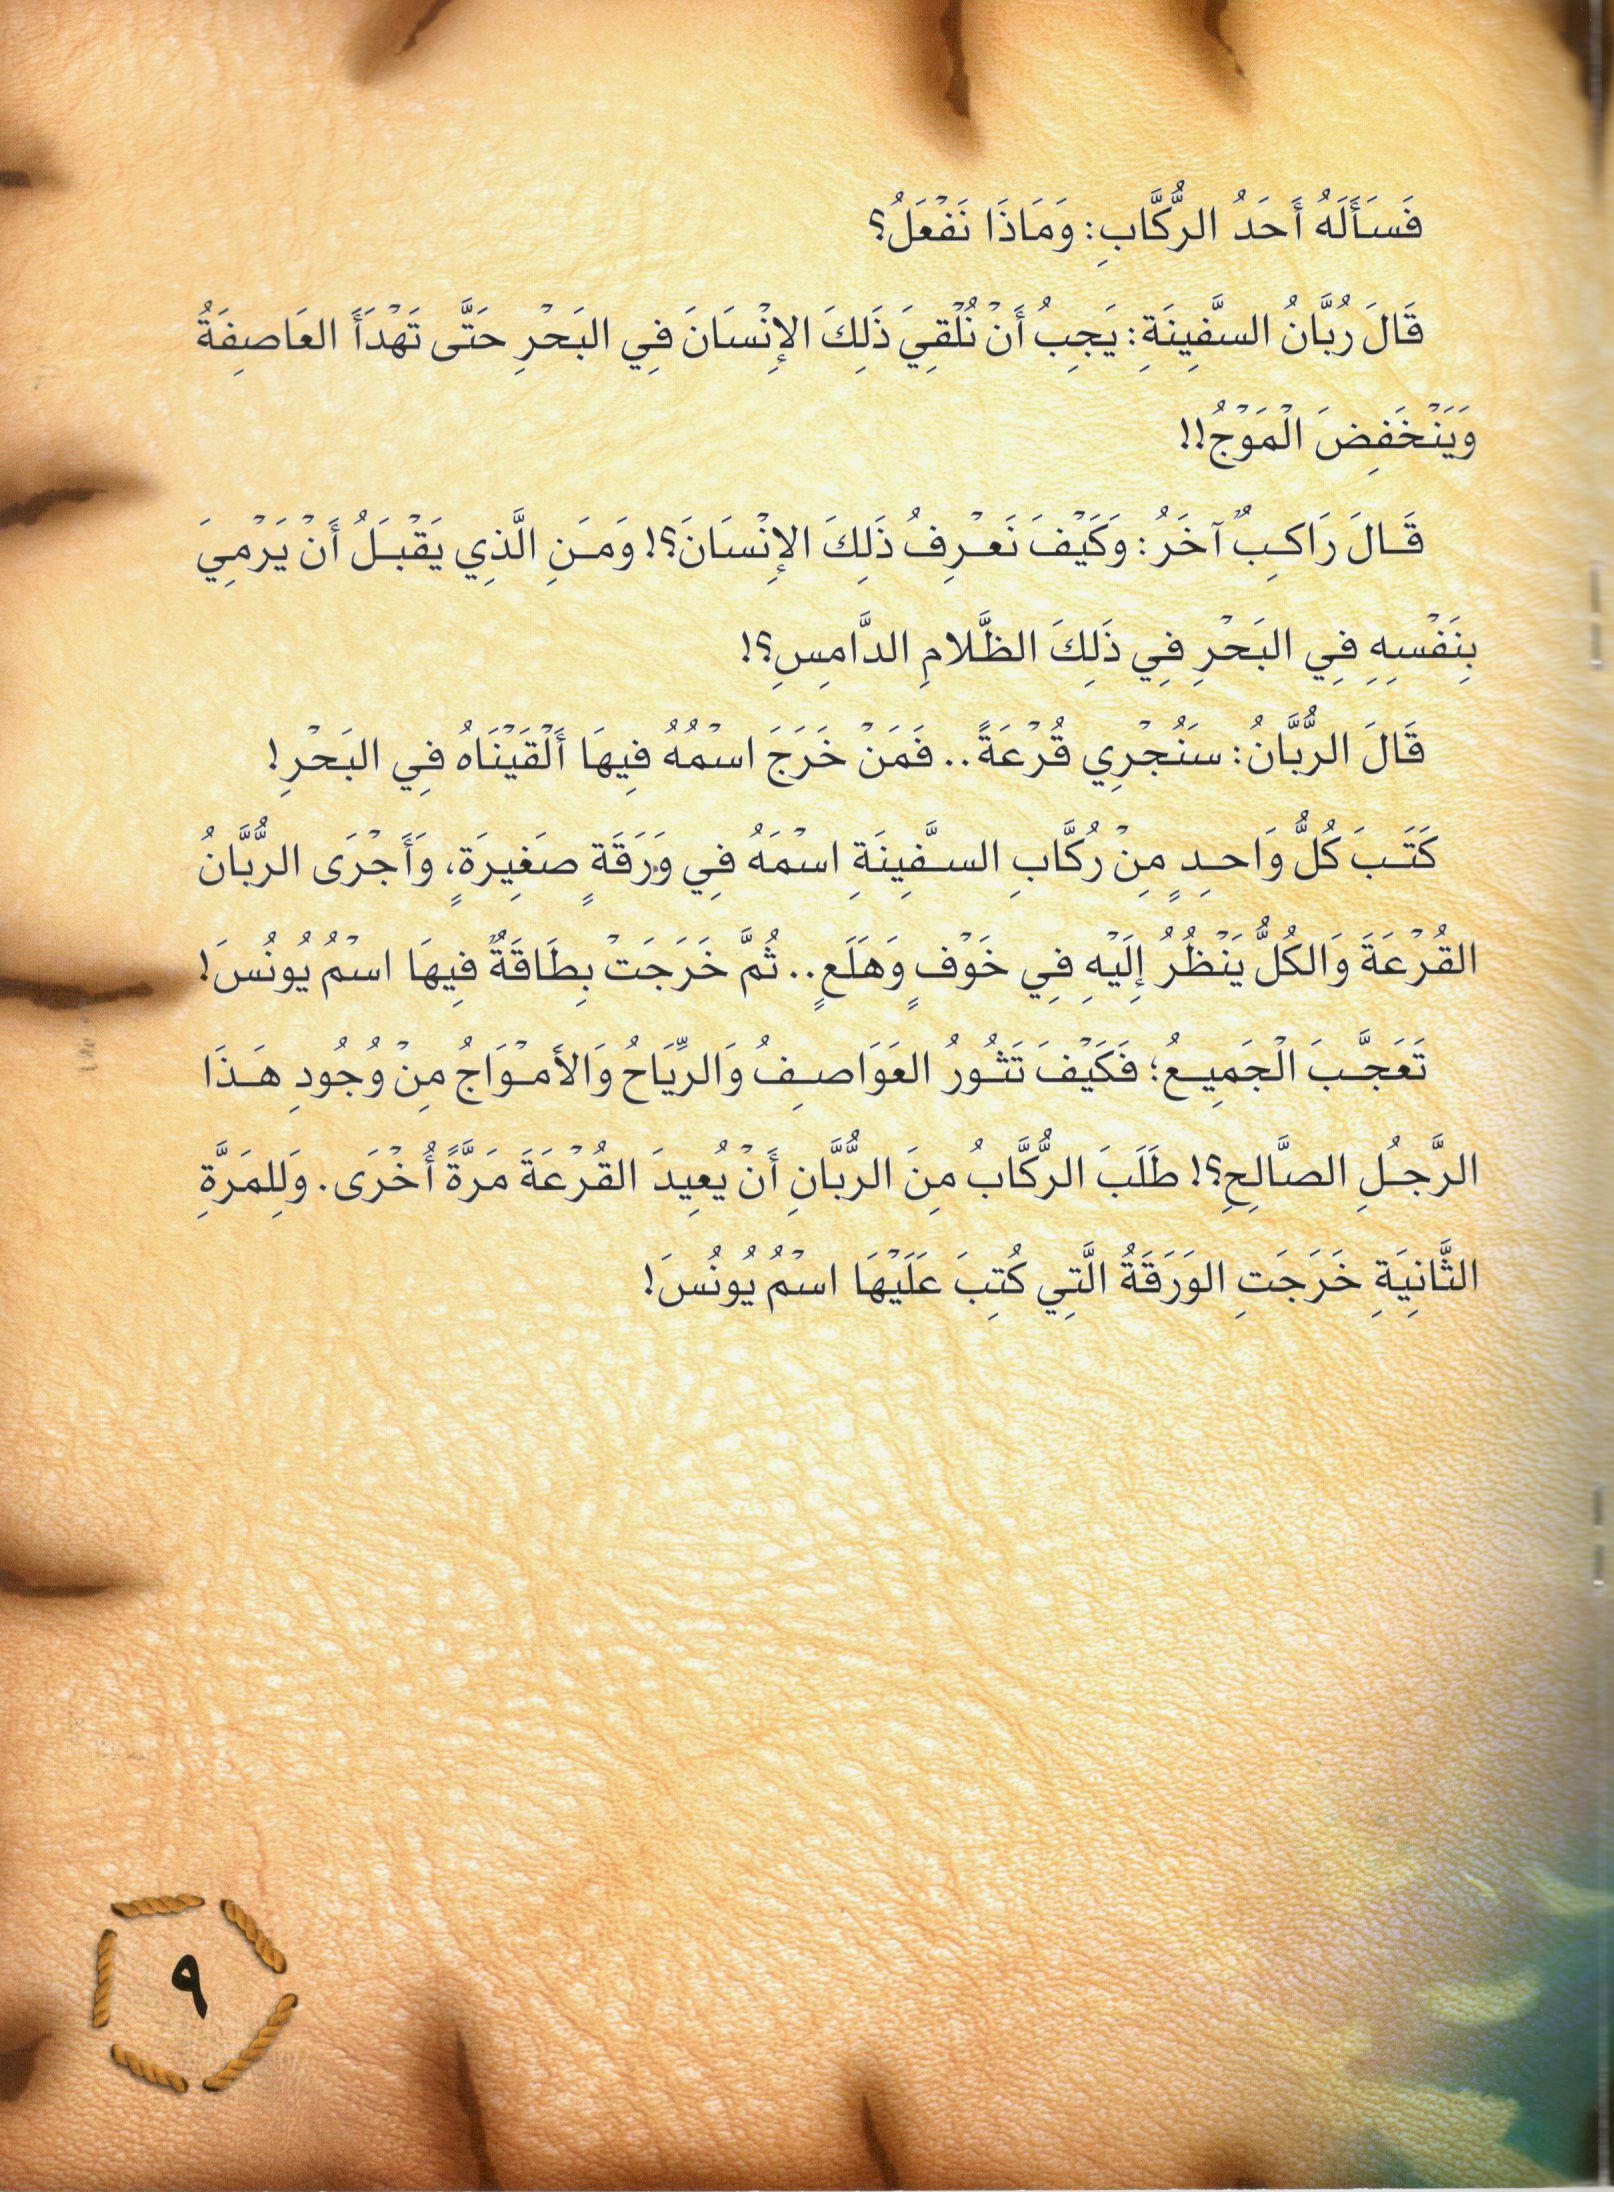 فَسَأَلَهُ أَحَدُ الرُّكَّابِ: وَمَاذَا نَفْعَلُ؟
قَالَ رُبَّانُ السَّفِينَةِ: يَجِبُ أَنْ نُلْقِيَ ذَلِكَ الإِنْسَانَ فِي البَحْرِ حَتَّى تَهْدَأَ العَاصِفَةُ
وَيَنْخَفِضَ الْمَوْجُ!!
قَالَ رَاكِبٌ آخَرُ: وَكَيْفَ نَعْرِفُ ذَلِكَ الإِنْسَانَ؟! وَمَنِ الَّذِي يَقْبَلُ أَنْ يَرْمِيَ
بِنَفْسِهِ فِي البَحْرِ فِي ذَلِكَ الظَّلامِ الدَّامِسِ؟!
قَالَ الرُّبَّانُ: سَنُجْرِي قُرْعَةً.. فَمَنْ خَرَجَ اسْمُهُ فِيهَا أَلْقَيْنَاهُ فِي البَحْرِ!
كَتَبَ كُلُّ وَاحِدٍ مِنْ رُكَّابِ السَّفِينَةِ اسْمَهُ فِي وَرَقَةٍ صَغِيرَةٍ، وَأَجْرَى الرُّبَّانُ
القُرْعَةَ وَالكُلُّ يَنْظُرُ إِلَيْهِ فِي خَوْفٍ وَهَلَعٍ.. ثُمَّ خَرَجَتْ بِطَاقَةٌ فِيهَا اسْمُ يُونُسَ!
تَعَجَّبَ الْجَمِيعُ؛ فَكَيْفَ تَثُورُ العَوَاصِفُ وَالرِّيَاحُ وَالأَمْوَاجُ مِنْ وُجُودِ هَذَا
الرَّجُلِ الصَّالِحِ؟! طَلَبَ الرُّكَّابُ مِنَ الرُّبَّانِ أَنْ يُعِيدَ القُرْعَةَ مَرَّةً أُخْرَى. وَلِلمَرَّةِ
الثَّانِيَةِ خَرَجَتِ الوَرَقَةُ الَّتِي كُتِبَ عَلَيْهَا اسْمُ يُونُسَ!
٩